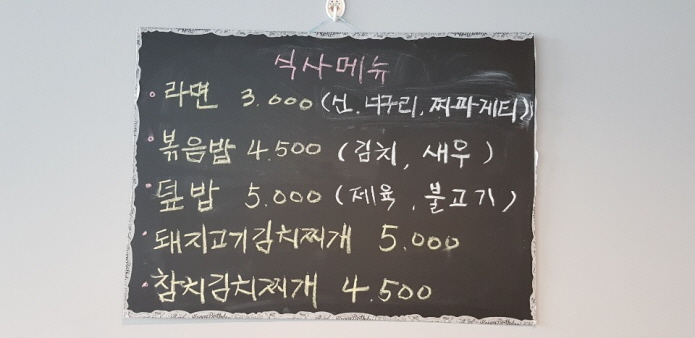 식사메뉴
• 라면 3.000 (신, 너구리, 짜파게티)
• 볶음밥 4.500 (김치, 새우)
• 덮밥 5.000 (제육, 불고기)
• 돼지고기김치찌개 5.000
• 참치김치찌개 4.500